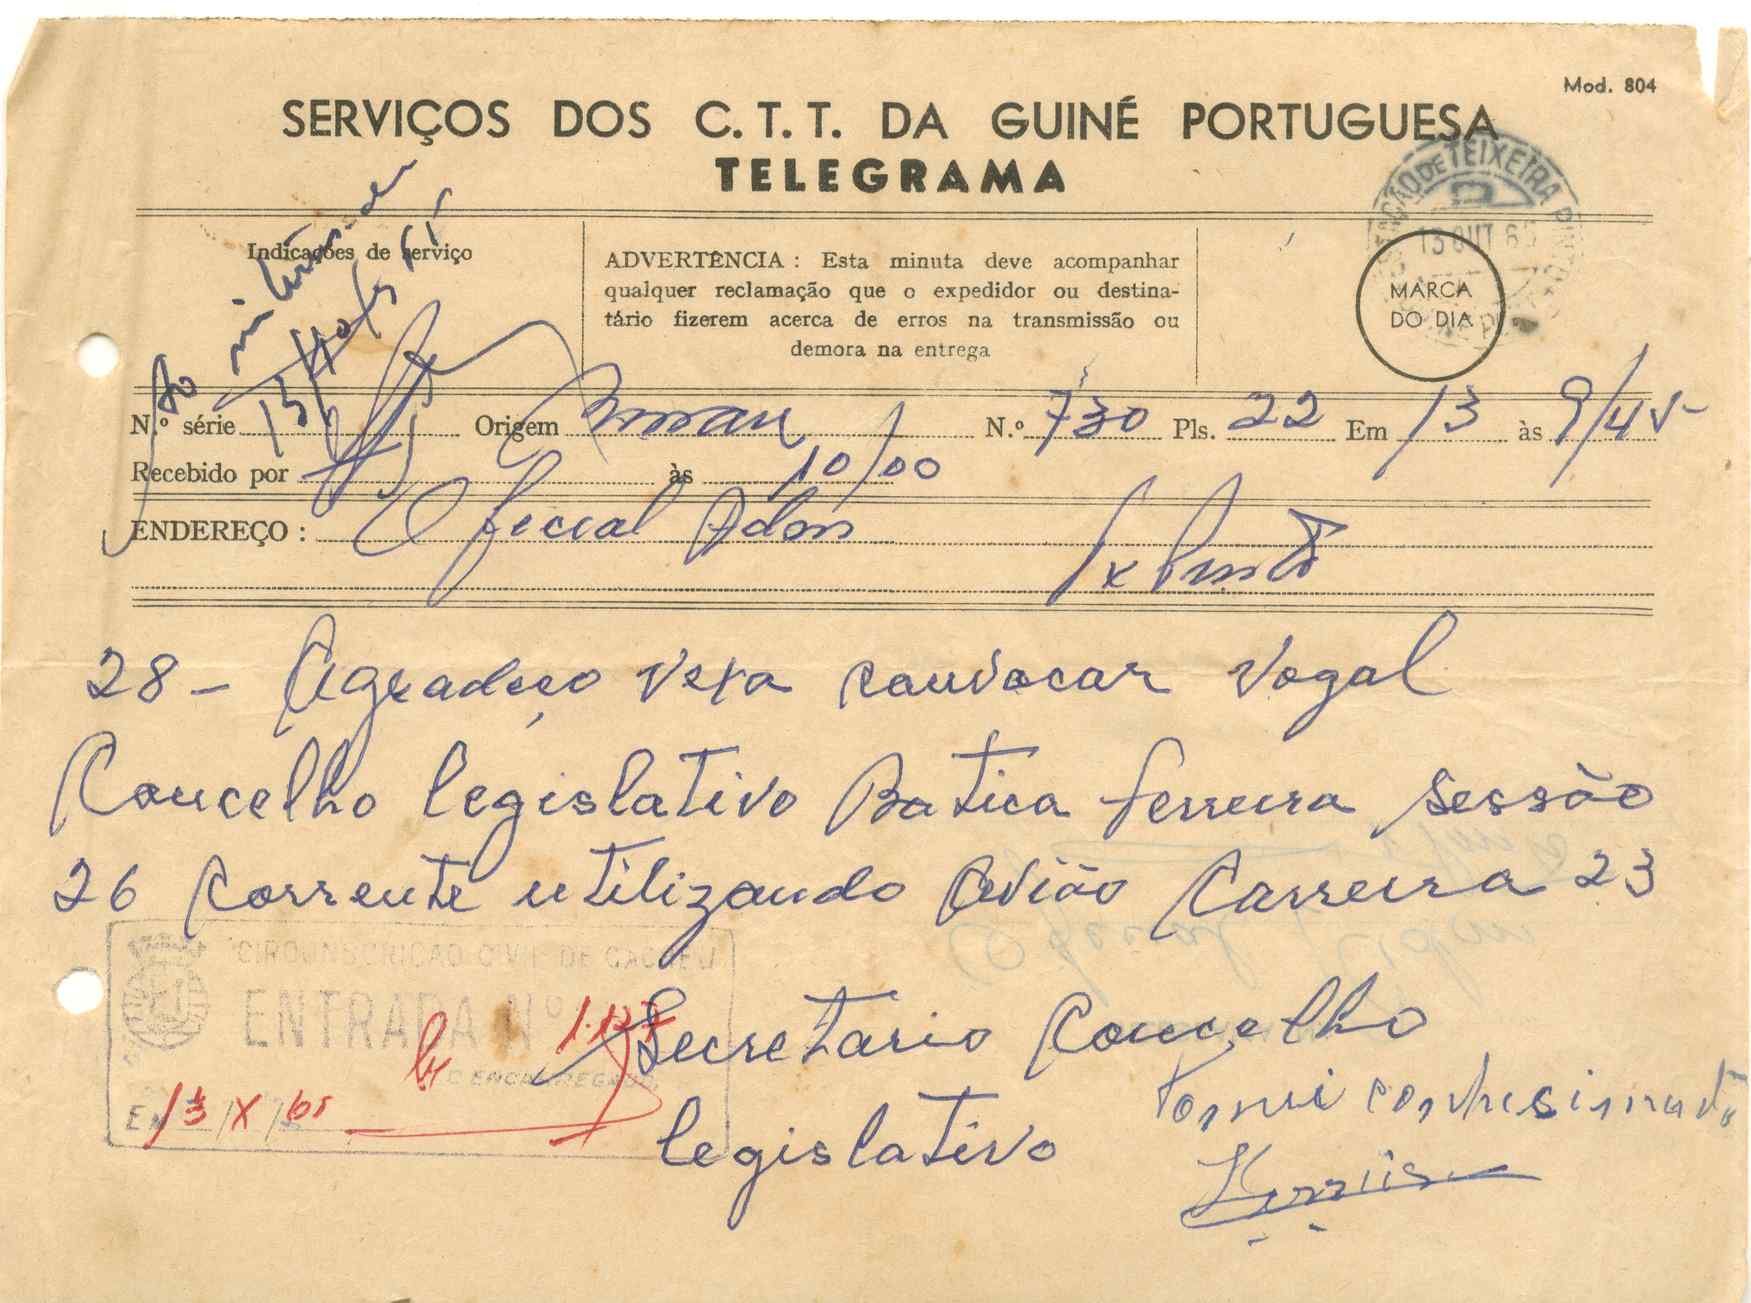 Mod. 804
SERVIÇOS DOS C. T. T. DA GUINÉ PORTUGUESA
TELEGRAMA
ÇÃO DE TEIXEIRA PINTO
13 OUT 65
Indicações de serviço
ADVERTÊNCIA : Esta minuta deve acompanhar
qualquer reclamação que o expedidor ou destina-
tário fizerem acerca de erros na transmissão ou
demora na entrega
MARCA
DO DIA
Ao
13/10/65
N.º série Origem Bissau N.º 730 Pls. 22 Em 13 às 9/45
Recebido por às 10/00
ENDEREÇO : Oficial Adon
Tx Pinto
28 - Agradeço vexa convocar vogal
Concelho legislativo Batica Ferreira sessão
26 corrente utilizando avião carreira 23
CIRCUNSCRIÇÃO CIVIL DE CACHEU
ENTRADA Nº
O ENCARREGADO,
EM 13/X/65
Secretario Concelho
legislativo
Tomei conhesimento